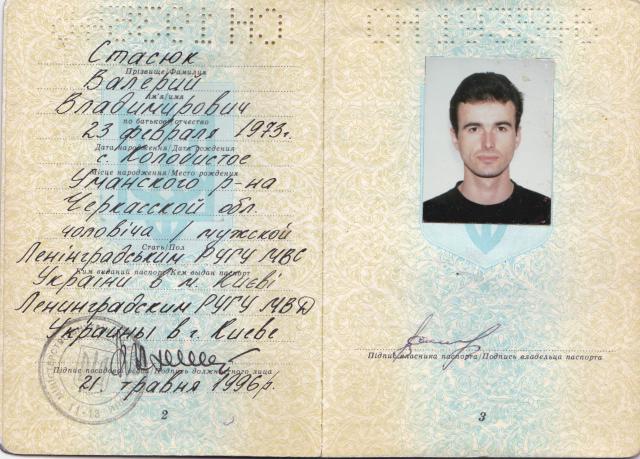 Стасюк
Прізвище/Фамилия
Валерий
Ім'я/имя
Владимирович
по батькові/отчество
23 февраля 1973г.
Дата народження/Дата рождения
с. Колодистое
Місце народження/Место рождения
Уманского р-на
Черкасской обл.
чоловіча / мужской
Стать/Пол
Ленінградським РУГУ МВС
Ким виданий паспорт/Кем выдан паспорт
України в м. Києві
Ленинградским РУГУ МВД
Украины в г. Киеве
Підпис посадової особи/Подпись должностного лица
21 травня 1996р.
2
Підпис власника паспорта/Подпись владельца паспорта
3